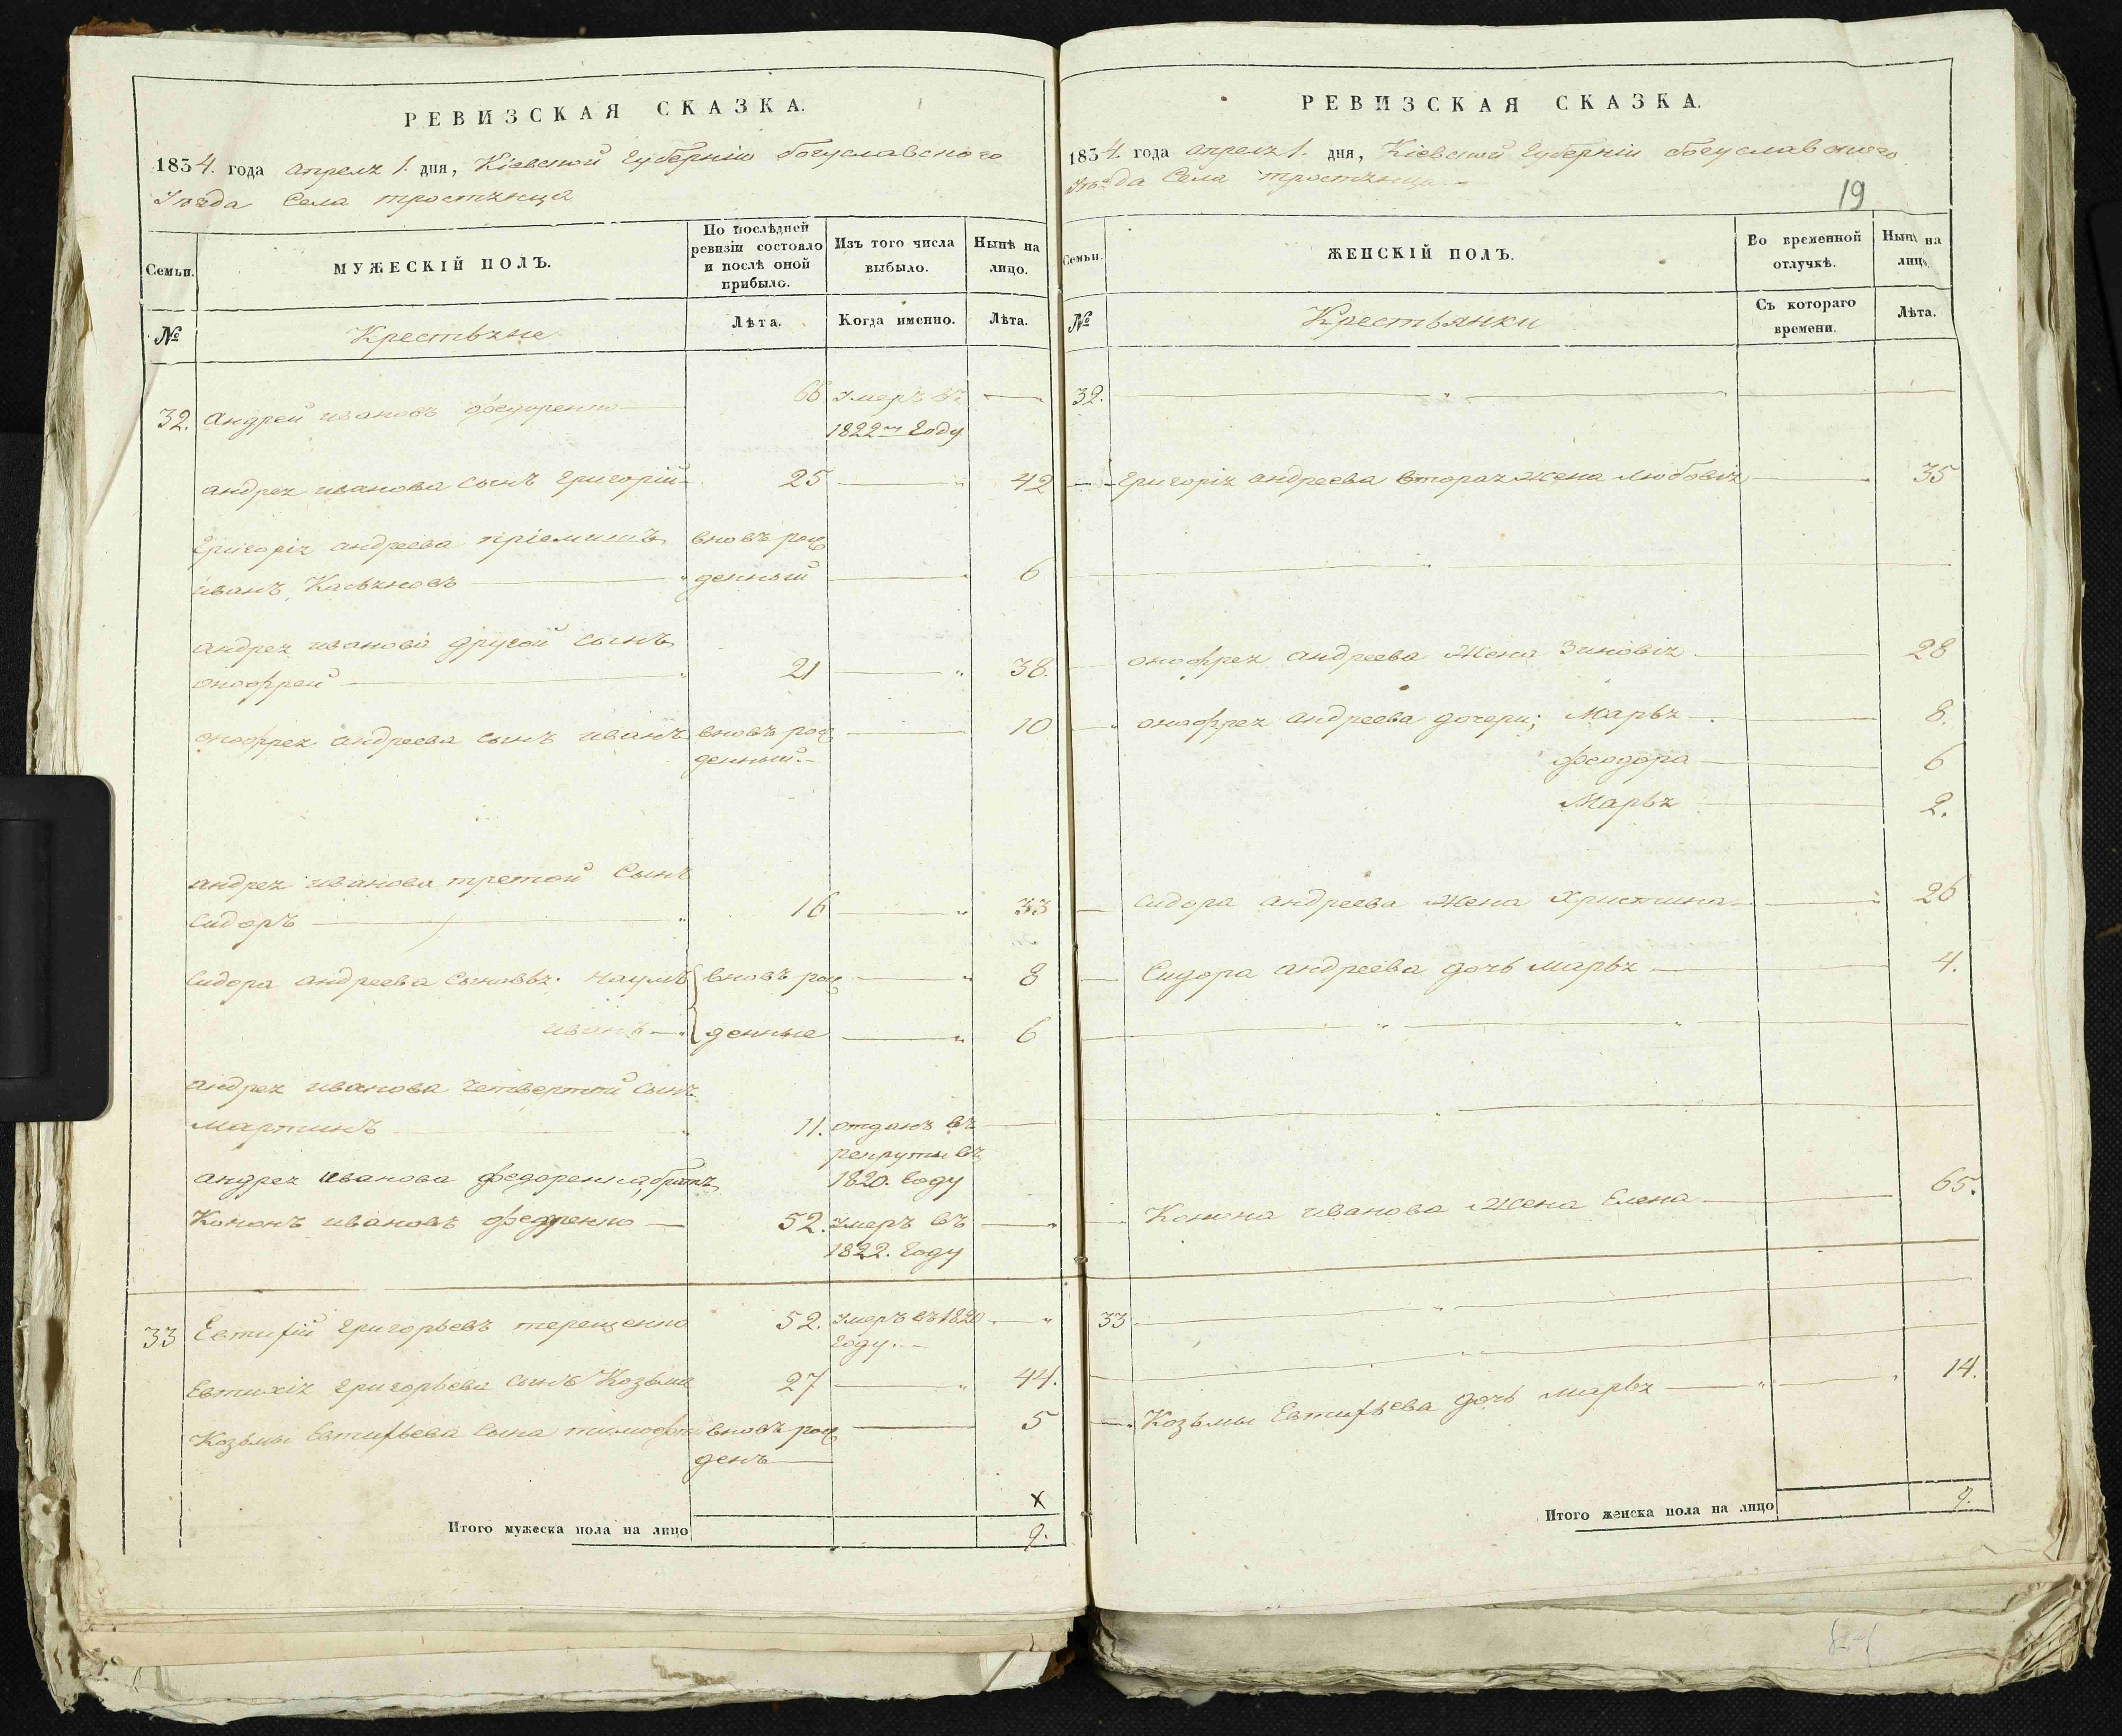 РЕВИЗСКАЯ СКАЗКА.
1834. года апреля 1. дня, Кіевской Губерніи Богуславского
Уѣзда Села тростянца
Семьи.
МУЖЕСКІЙ ПОЛЪ.
По послѣдней ревизіи состояло и послѣ оной прибыло.
Изъ того числа выбыло.
Нынѣ на лицо.
№
Крестьяне
Лѣта.
Когда именно.
Лѣта.
32. андрей ивановъ федоренко 66 умеръ въ
1822м Году
андрея иванова сынъ Григорій 25 42
Григорія андреева пріемишъ вновъ рож
иванъ, Касьяновъ денный 6
андрея иванова другой сынъ
онофрей 21 38.
онофрея андреева сынъ иванъ вновъ рож 10
денный.
андрея иванова третой Сынъ
Сидоръ 16 33
Сидора андреева Сыновья: наумъ вновъ рож 8
иванъ денные 6
андрея иванова четвертой сынъ
мартинъ 11. отданъ въ
рекруты въ
андрея иванова федоренка, братъ 1820. Году
Кононъ ивановъ федоренко 52. умеръ въ
1822. Году
33 Евтифій григорьевъ терещенко 52. умеръ въ 1820
Году.
Евтихія григорьева сынъ Козьма 27 44.
Козьмы Евтифьева Сына тимофей вновъ рож 5
денъ
х
Итого мужеска пола на лицо 9.
РЕВИЗСКАЯ СКАЗКА.
1834. года апреля 1. дня, Кіевской Губерніи Богуславского
Уѣзда Села тростянца
19
Семьи.
ЖЕНСКІЙ ПОЛЪ.
Во временной отлучкѣ.
Нынѣ на лицо.
№
Крестьянки
Съ котораго времени.
Лѣта.
32.
Григорія андреева вторая жена любовія 35
онофрея андреева Жена Зиновія 28
онофрея андреева дочери; Марья 8.
феодора 6
Марья 2.
Сидора андреева Жена Христина 26
Сидора андреева дочь марья 4.
Конона иванова Жена Елена 65.
33
Козьмы Евтифьева дочь марья 14.
Итого женска пола на лицо 9.